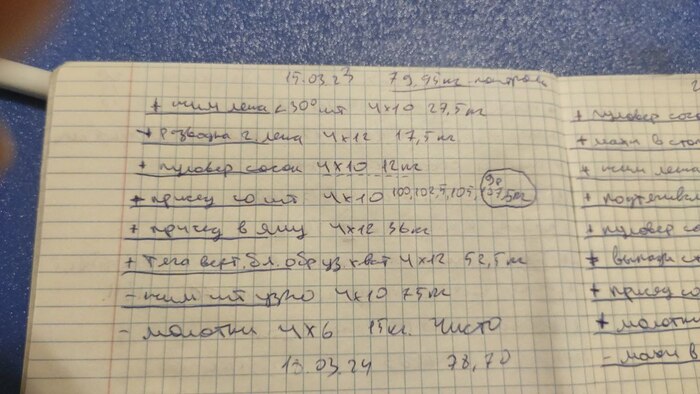 15.03.23 79,95кг контроль
+ жим лежа <30° шт 4х10 27,5кг
+ разводка г. лежа 4х12 17,5кг
+ пуловер сосок 4х10 12кг
+ присед со шт 4х10 100, 102,5, 105, 107,5кг
+ присед в яму 4х12 36кг
+ тяга верт. бл. обр уз хват 4х12 52,5кг
- жим шт узко 4х10 75кг
- молотки 4х6 15кг. Чисто
13.03.24 78,70
+ пуловер сос
+ махи в сто
+ жим лежа
+ подтягива
+ пуловер со
+ выпады ст
+ присед со
+ молотк
- махи в